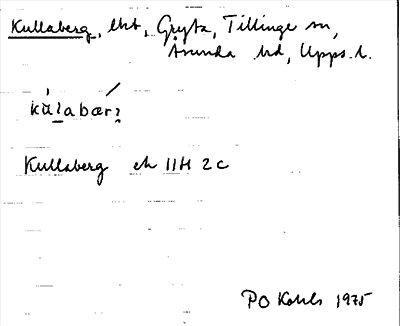 Kullaberg, lht, Gryta, Tillinge sn,
Åsunda hd, Upps. l.
kulabær
Kullaberg ek 11H 2c
PO Kohls 1975